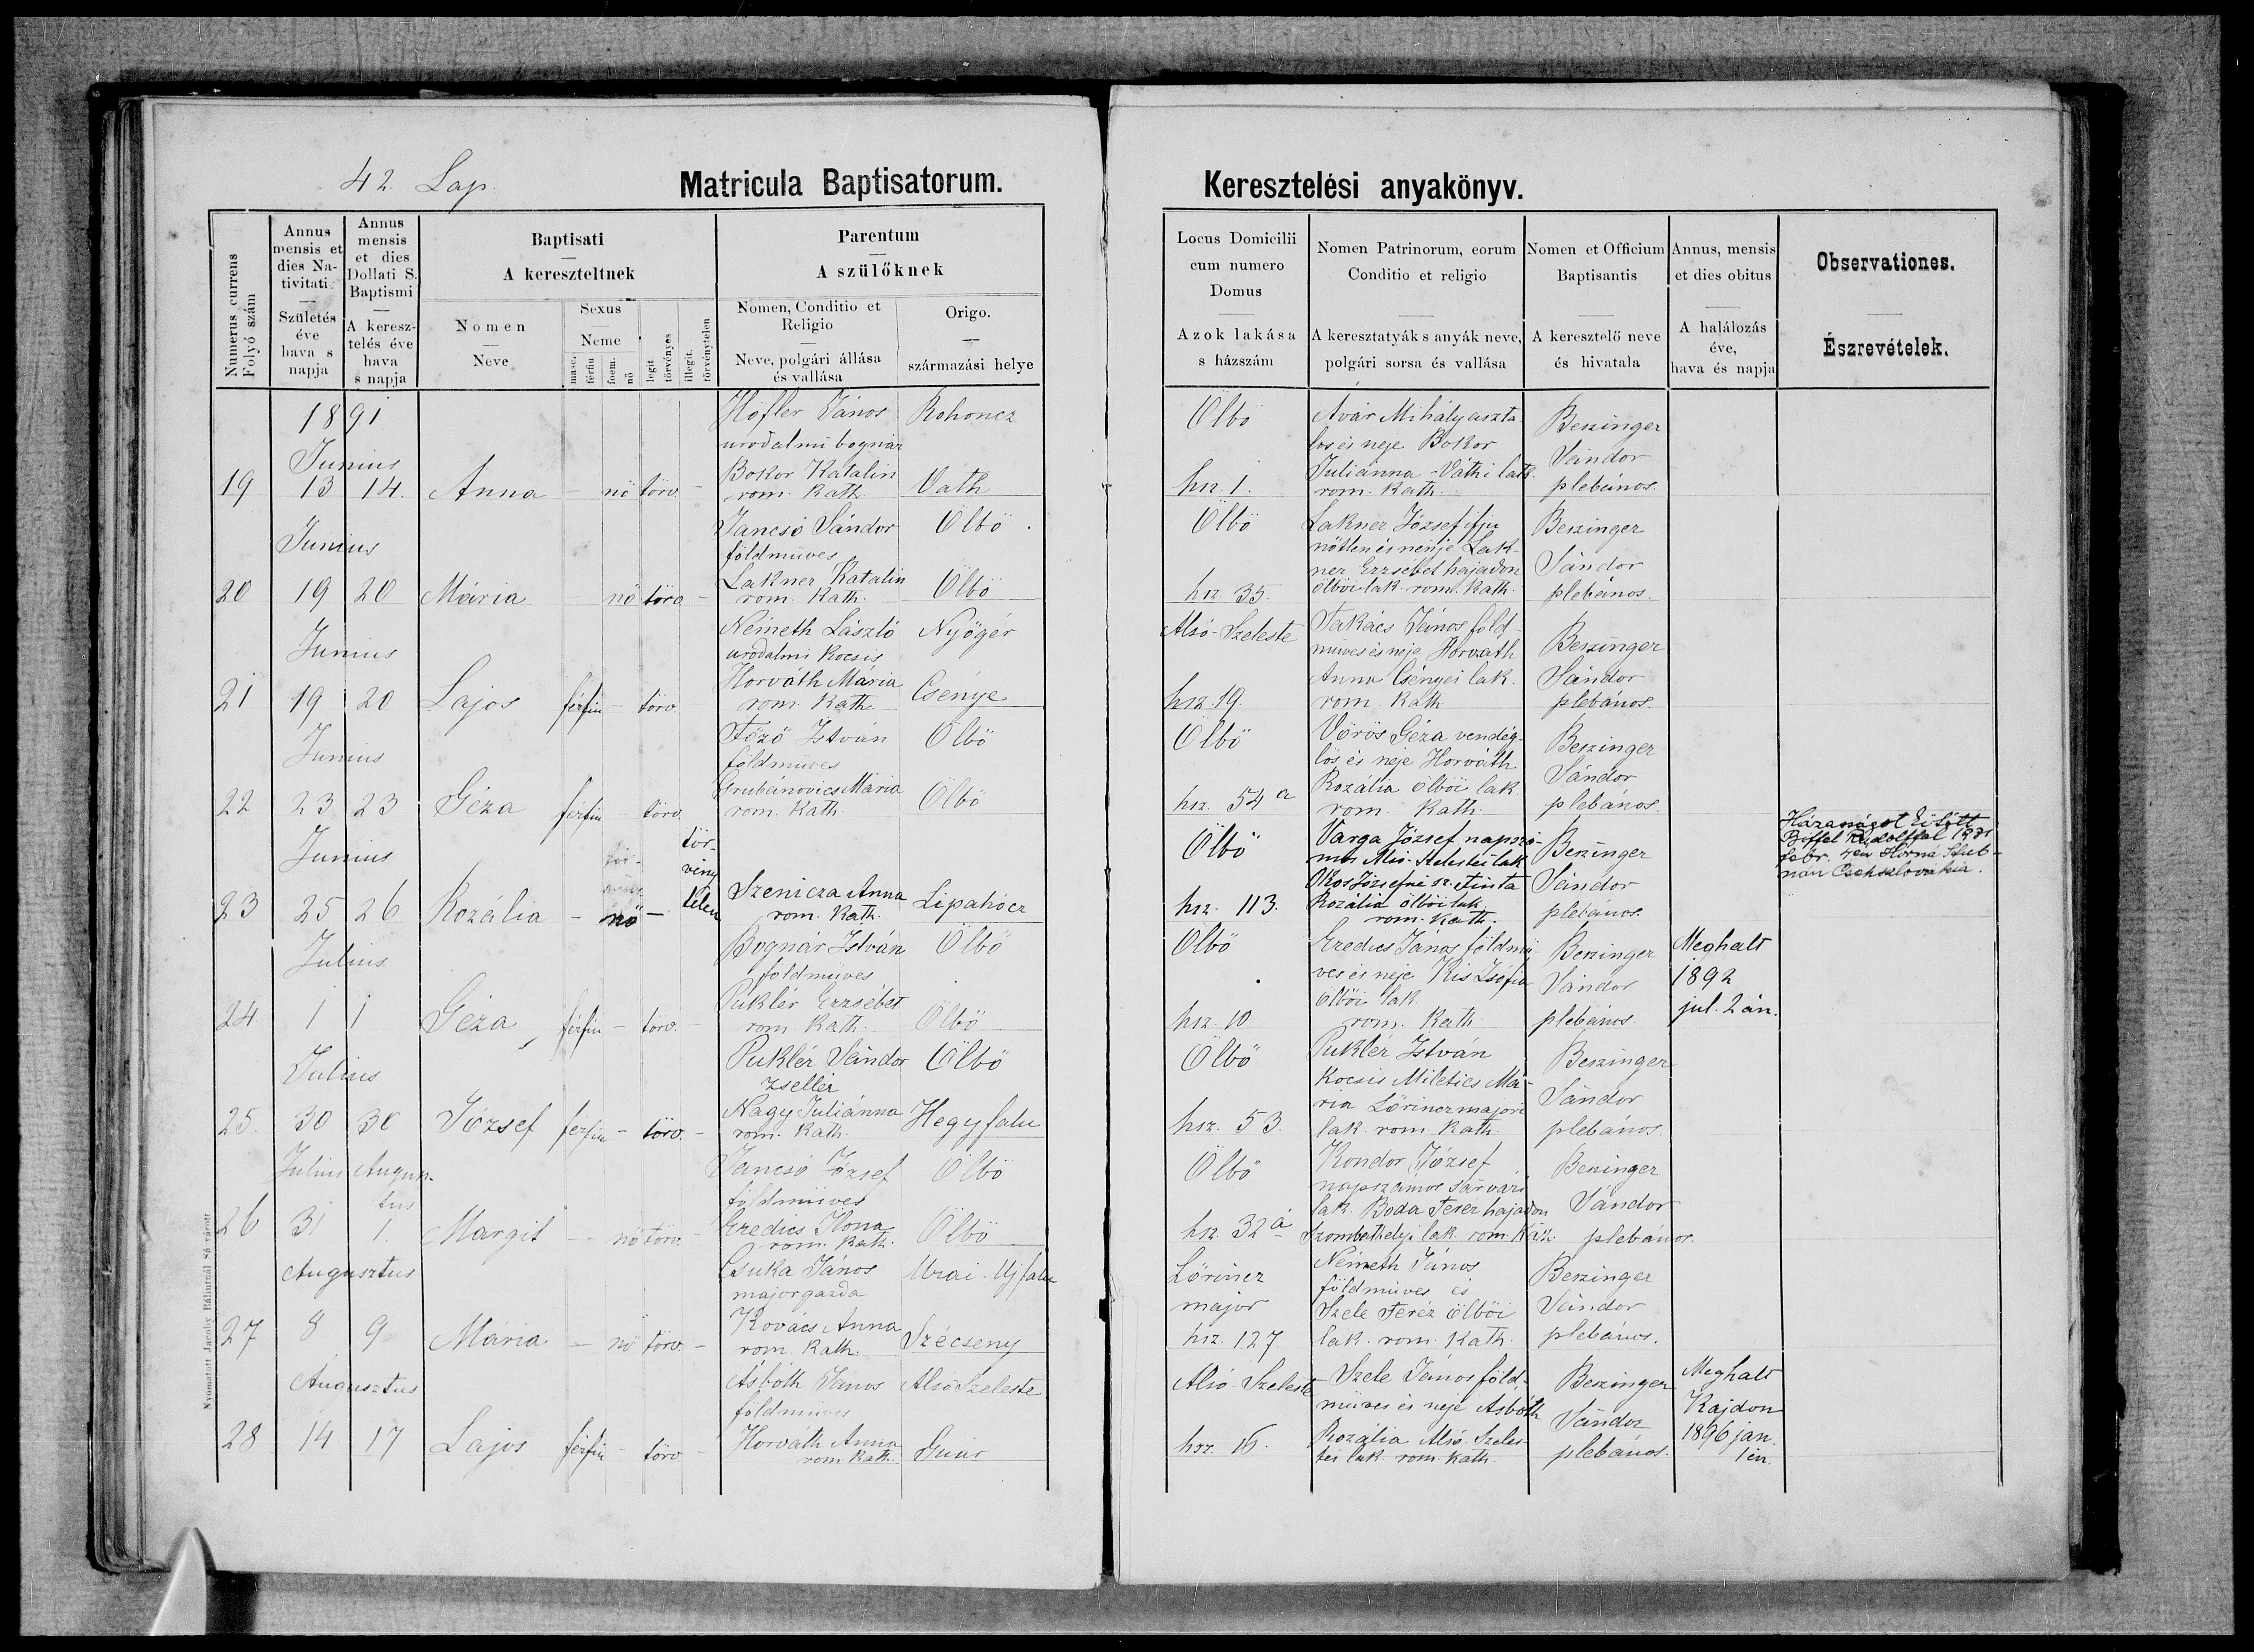 42. Lap.
Matricula Baptisatorum.
Numerus currens
Folyó szám
Annus
mensis et
dies Na-
tivitati
Születés
éve
hava s
napja
Annus
mensis
et dies
Dollati S.
Baptismi
A keresz-
telés éve
hava
s napja
Baptisati
A kereszteltnek
Nomen
Neve
Sexus
Neme
masc.
férfiu
foem.
nő
legit
törvényes
illegit.
törvénytelen
Parentum
A szülőknek
Nomen, Conditio et
Religio
Neve, polgári állása
és vallása
Origo.
származási helye
1891
Höfler János Rohoncz
urodalmi bognár
Junius
Bokor Katalin
19 13 14. Anna – nő törv. – rom. Kath. Váth
Jancsó Sándor Ölbö
Junius
földmüves
Lakner Katalin
20 19 20 Mária nő törv. – rom. Kath. Ölbö
Németh László Nyőgér
Junius
urodalmi kocsis
Horváth Mária
21 19 20 Lajos férfiu – törv. rom. Kath. Csénye
Föző István Ölbö
Junius
földmüves
Grubánovics Mária
22 23 23 Géza férfiu – törv. rom. Kath. Ölbö
Junius
tör-
vény
telen
Szenicza Anna
23 25 26 Rozália – nő – rom. Kath. Lipahócz
Bognár István Ölbö
Julius
földmüves
Puklér Erzsébet
24 1 1 Géza férfiu – törv. – rom Kath. Ölbö
Puklér Sándor Ölbö
Julius
zsellér
Nagy Juliánna
25. 30 30 József férfiu – törv. – rom. Kath. Hegyfalu
Julius Augus-
tus
Jancsó József Ölbö
földmüves
Eredics Ilona
26 31 1. Margit – nő törv. – rom. Kath. Ölbö
Csuka János Ujfalu
Augusztus
majorgazda
Kovács Anna
27 8 9 Mária – nő törv. – rom. Kath. Szécseny
Asbóth János Alsó Szeleste
Augusztus
földmüves
Horváth Anna
28 14 17 Lajos férfiu – törv. – rom. Kath. Guár
Nyomatott Jacoby Bálintnál Sárvárott
Keresztelési anyakönyv.
Locus Domicilii
cum numero
Domus
Azok lakása
s házszám
Nomen Patrinorum, eorum
Conditio et religio
A keresztatyák s anyák neve,
polgári sorsa és vallása
Nomen et Officium
Baptisantis
A keresztelő neve
és hivatala
Annus, mensis
et dies obitus
A halálozás
éve,
hava és napja
Observationes.
Észrevételek.
Ölbö
hsz. 1.
Avár Mihály aszta-
los és neje Bokor
Juliánna - Váthi lak.
rom. Kath.
Beszinger
Sándor
plebános.
Ölbö
hsz 35.
Lakner József ifju
nőtlen és nénje Lak-
ner Erzsébet hajadon
ölböi lak. rom. Kath.
Beszinger
Sándor
plebános.
Alsó-Szeleste
hsz 19.
Takács János föld
müves és neje Horváth
Anna Csényei lak.
rom. Kath
Beszinger
Sándor
plebános.
Ölbö
hsz. 54 a
Vörös Géza vendég-
lös és neje Horváth
Rozália ölböi lak
rom. Kath.
Beszinger
Sándor
plebános.
Ölbö
hsz. 113.
Varga József napszá-
mos Alsó-Szelestei lak
Okos Józsefné sz. Tinta
Rozália ölböi lak.
rom. Kath.
Beszinger
Sándor
plebános.
Házasságot kötött
Rudolffal 1931
febr. Horná Stub-
nán Csehszlovákia.
Ölbö
hsz. 10
Eredics János földmü
ves és neje Kis Zsófia
ölböi lak.
rom. Kath
Beszinger
Sándor
plebános
Meghalt
1892
jul. 2 án.
Ölbö
hsz. 53.
Puklér István
Kocsis Miletics Má-
ria Lörinczmajori
lak. rom. Kath.
Beszinger
Sándor
plebános.
Ölbö
hsz. 32 á
Kondor József
napszámos sárvári
lak. Boda Teréz hajadon
Szombathelyi lak. rom. Kath.
Beszinger
Sándor
plebános.
Lörincz
major
hsz. 127.
Németh János
földmüves és
Szele Teréz ölböi
lak. rom. Kath.
Beszinger
Sándor
plebános.
Alsó-Szeleste
hsz. 16.
Szele János föld-
müves és neje Asbóth
Rozália Alsó-Szeles-
tei lak. rom. Kath.
Beszinger
Sándor
plebános.
Meghalt
Kajdon
1896 jan.
1 én.